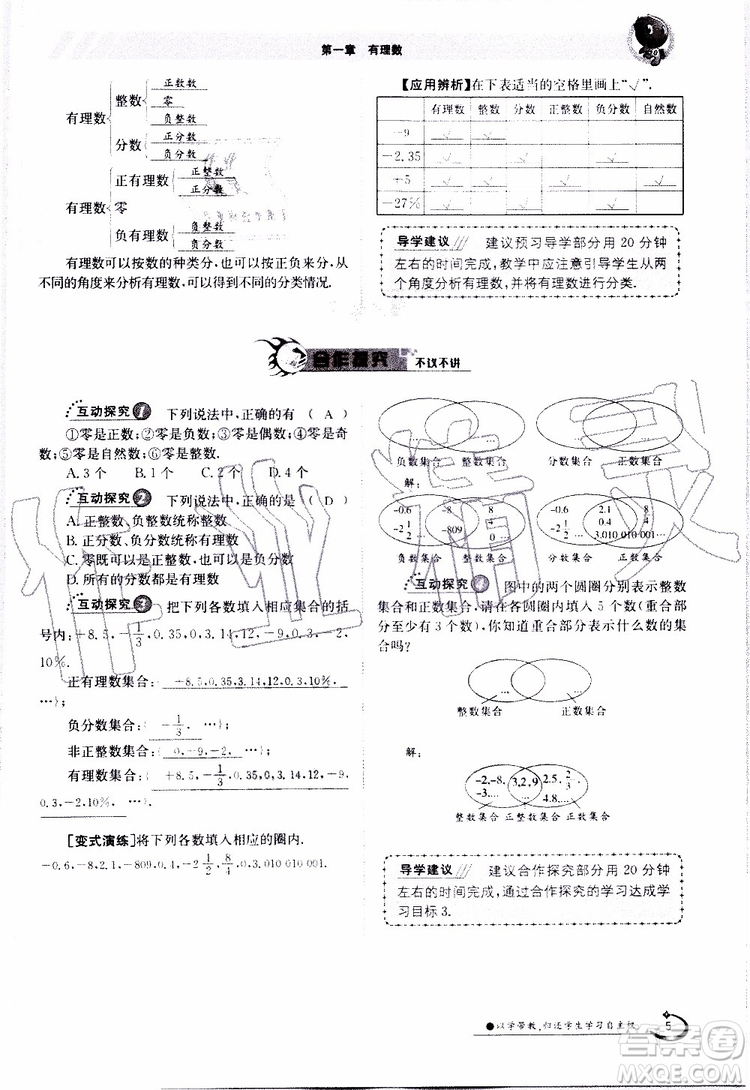 第一章 有理数
有理数
整数
正数数
零
负整数
分数
正分数
负分数
有理数
正有理数
正整数
正分数
零
负有理数
负整数
负分数
有理数可以按数的种类分,也可以按正负来分,从
不同的角度来分析有理数,可以得到不同的分类情况.
【应用辨析】在下表适当的空格里画上“√”.
有理数 整数 分数 正整数 负分数 自然数
-9 √ √
-2.35 √ √ √
+5 √ √ √ √
-27% √ √ √
导学建议 建议预习导学部分用 20 分钟
左右的时间完成,教学中应注意引导学生从两
个角度分析有理数,并对有理数进行分类.
合作探究 不议不讲
互动探究1 下列说法中,正确的有 ( A )
①零是正数;②零是负数;③零是偶数;④零是奇
数;⑤零是自然数;⑥零是整数.
A.3个 B.1个 C.2个 D.4个
互动探究2 下列说法中,正确的是 ( D )
A.正整数、负整数统称整数
B.正分数、负分数统称有理数
C.零既可以是正整数,也可以是负整数
D.所有的分数都是有理数
互动探究3 把下列各数填入相应集合的括
号内:+8.5,-1/3,0.35,0,3.14,12,-9,0.3,-2,
10%.
正有理数集合: +8.5,0.35,3.14,12,0.3,10%
负分数集合: -1/3, …};
非正整数集合:{0,-9,-2, …};
有理数集合:{ +8.5,-1/3,0.35,0,3.14,12,-9,
0.3,-2,10%, …}.
[变式演练]将下列各数填入相应的圈内.
-0.6,-8,2.1,-809,0.4,-2 1/2,8/4,3.010 010 001.
负数集合 整数集合 分数集合 正数集合
解:
-0.6 -2 1/2 -8 -809 8/4 0
-0.6 -2 1/2 2.1 0.4 3.010 010 001 8/4
负数集合 整数集合 分数集合 正数集合
互动探究4 图中的两个圆圈分别表示整数
集合和正数集合,请在各圆圈内填入 5 个数(重合部
分至少有 3 个数),你知道重合部分表示什么数的集
合吗?
… …
整数集合 正数集合
解:
-2,-8, -3,… 3,2,9 2.5,2/3, 4.8,…
整数集合 正整数集合 正数集合
导学建议 建议合作探究部分用 20 分钟
左右的时间完成,通过合作探究的学习达成学
习目标 3.
●以学带教,归还学生学习自主权
5
作业精灵
答案圈